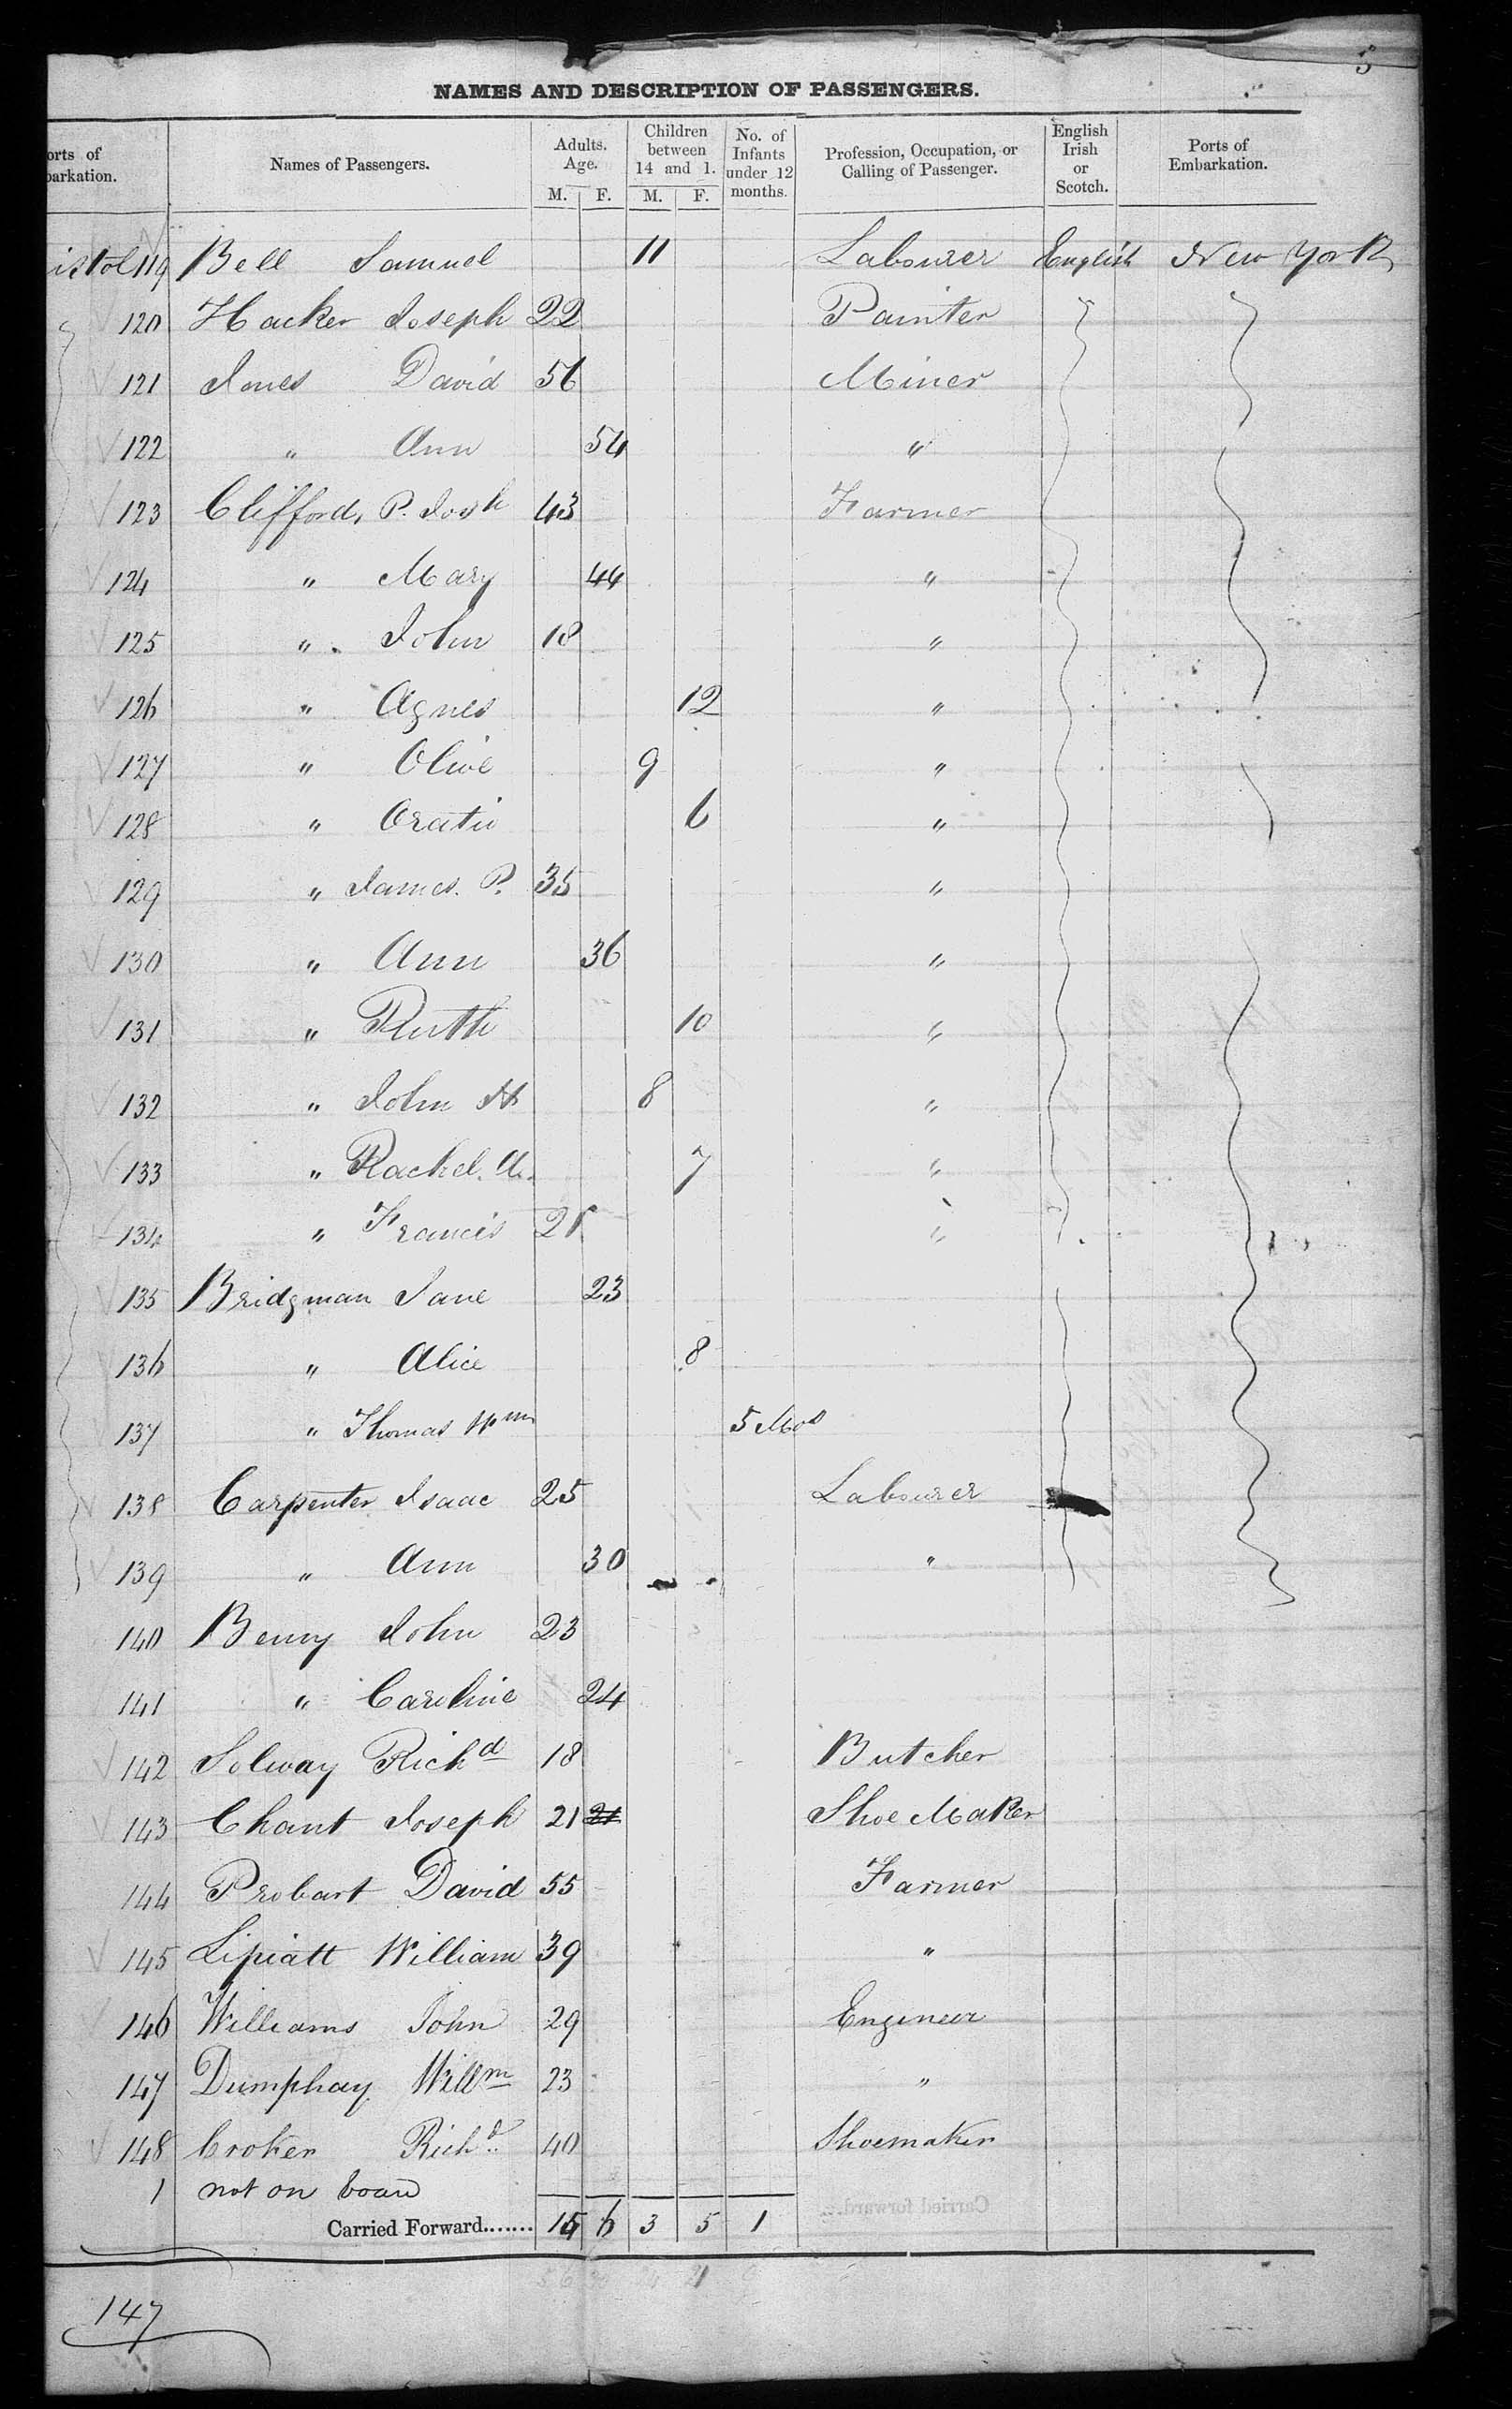 5
NAMES AND DESCRIPTION OF PASSENGERS.
orts of barkation. Names of Passengers. Adults. Age. M. F. Children between 14 and 1. M. F. No. of Infants under 12 months. Profession, Occupation, or Calling of Passenger. English Irish or Scotch. Ports of Embarkation.
istol 119 Bell Samuel 11 Labourer English New York
120 Hacker Joseph 22 Painter
121 Jones David 56 Miner
122 " Ann 54 "
123 Clifford, P. Josh 43 Farmer
124 " Mary 44 "
125 " John 18 "
126 " Agnes 12 "
127 " Olive 9 "
128 " Oratio 6 "
129 " James. P. 35 "
130 " Ann 36 "
131 " Ruth 10 "
132 " John H 8 "
133 " Rachel. A. 7 "
134 " Francis 21 "
135 Bridgman Jane 23
136 " Alice 8
137 " Thomas Wm 5 Mos
138 Carpenter Isaac 25 Labourer
139 " Ann 30 "
140 Benny John 23
141 " Caroline 24
142 Solway Richd 18 Butcher
143 Chant Joseph 21 21 Shoe Maker
144 Probart David 55 Farmer
145 Lipiatt William 39 "
146 Williams John 29 Engineer
147 Dumphay Willm 23 "
148 Croker Richd 40 Shoemaker
1 not on board
Carried Forward....... 6 3 5 1
147